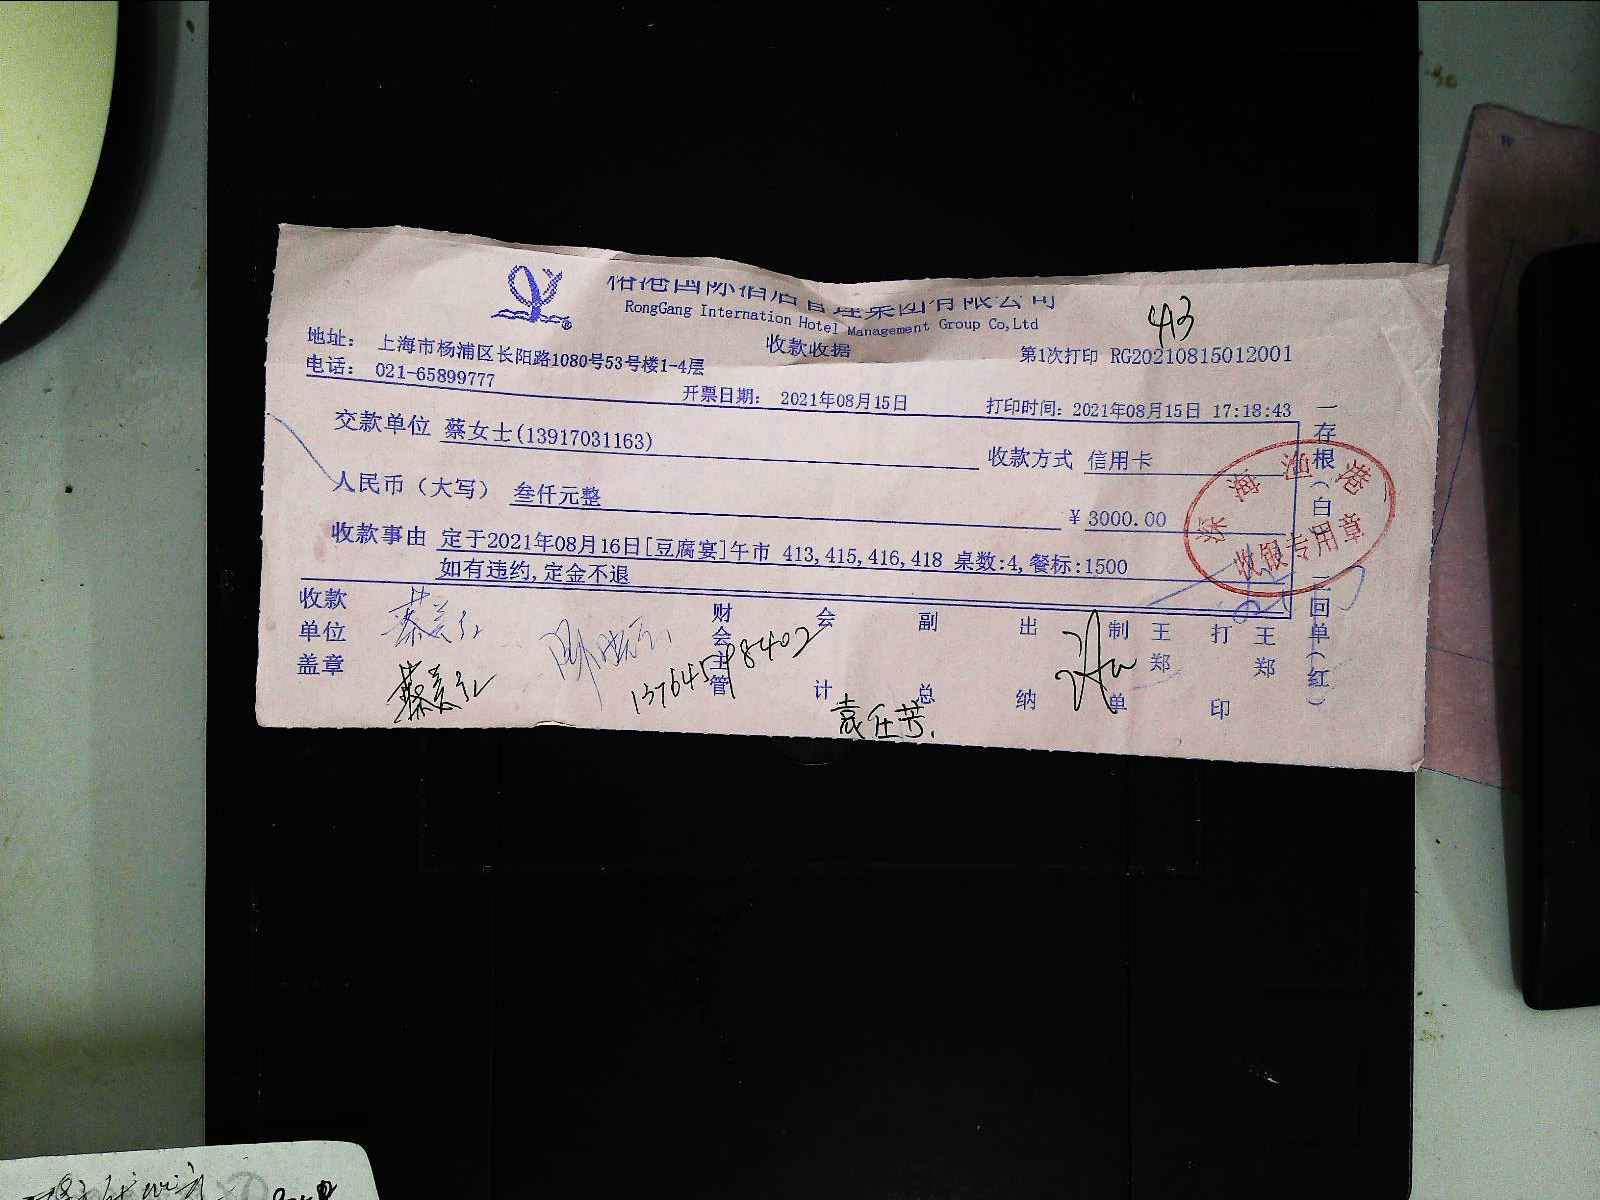 裕港国际酒店管理集团有限公司
RongGang Internation Hotel Management Group Co,Ltd
413
收款收据
第1次打印 RG20210815012001
地址： 上海市杨浦区长阳路1080号53号楼1-4层
电话： 021-65899777
开票日期： 2021年08月15日
打印时间：2021年08月15日 17:18:43
交款单位 蔡女士(13917031163)
收款方式 信用卡
人民币（大写） 叁仟元整
¥ 3000.00
收款事由 定于2021年08月16日[豆腐宴]午市 413,415,416,418 桌数:4,餐标:1500
如有违约,定金不退
收款单位盖章
蔡美红
蔡美红
13764598402
财会主管
会计
副总
出纳
制单
王郑
打印
王郑
一存根（白）
二回单（红）
海
港
收银专用章